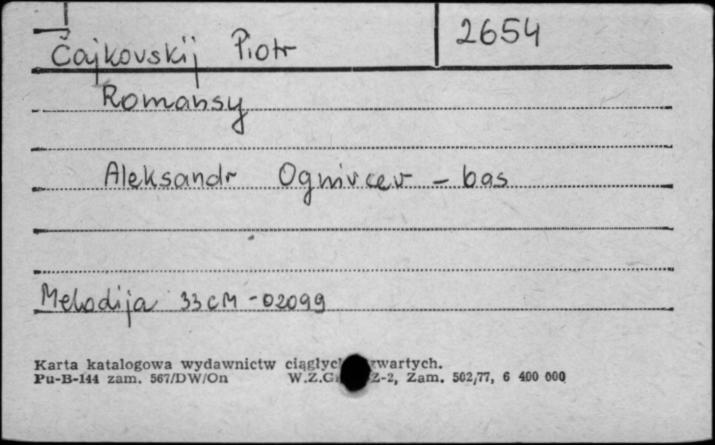 Čajkovskij Piotr 2654
Romansy
Aleksandr Ognivcev - bas
Melodija 33CM-02099
Karta katalogowa wydawnictw
Pu-B-144 zam. 567/DW/On Zam. 502/77, 6 400 000